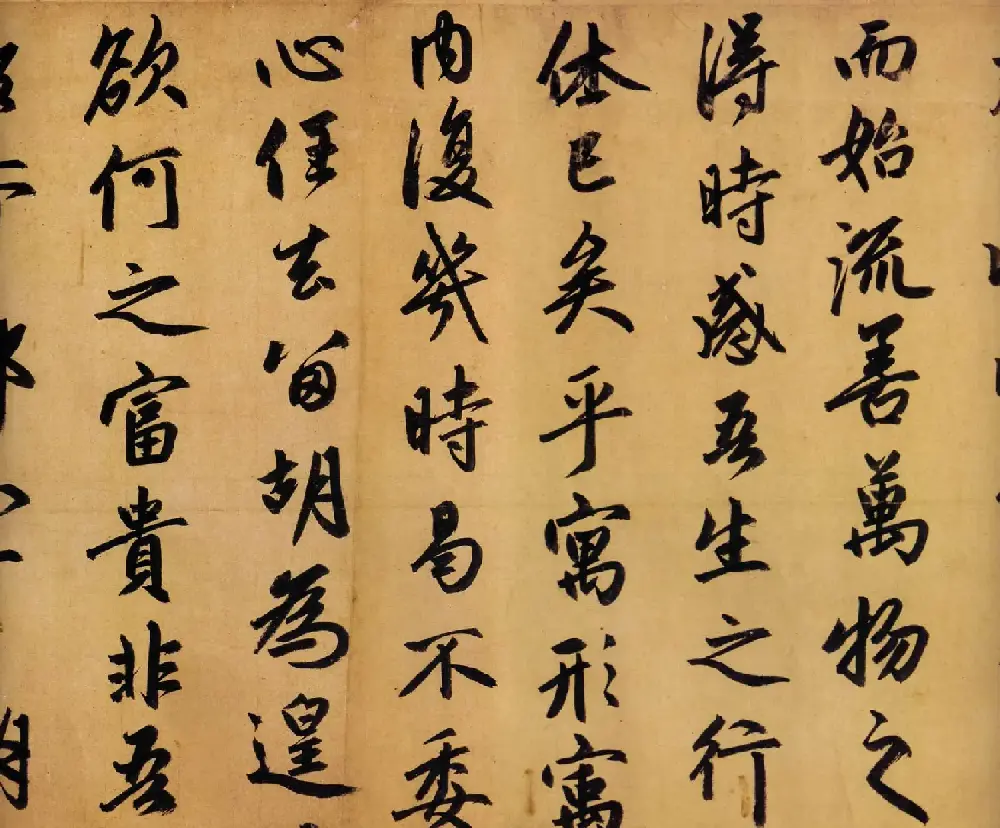 而始流善萬物之
得時感吾生之行
休已矣乎寓形寓
內復幾時曷不委
心任去留胡為遑
欲何之富貴非吾